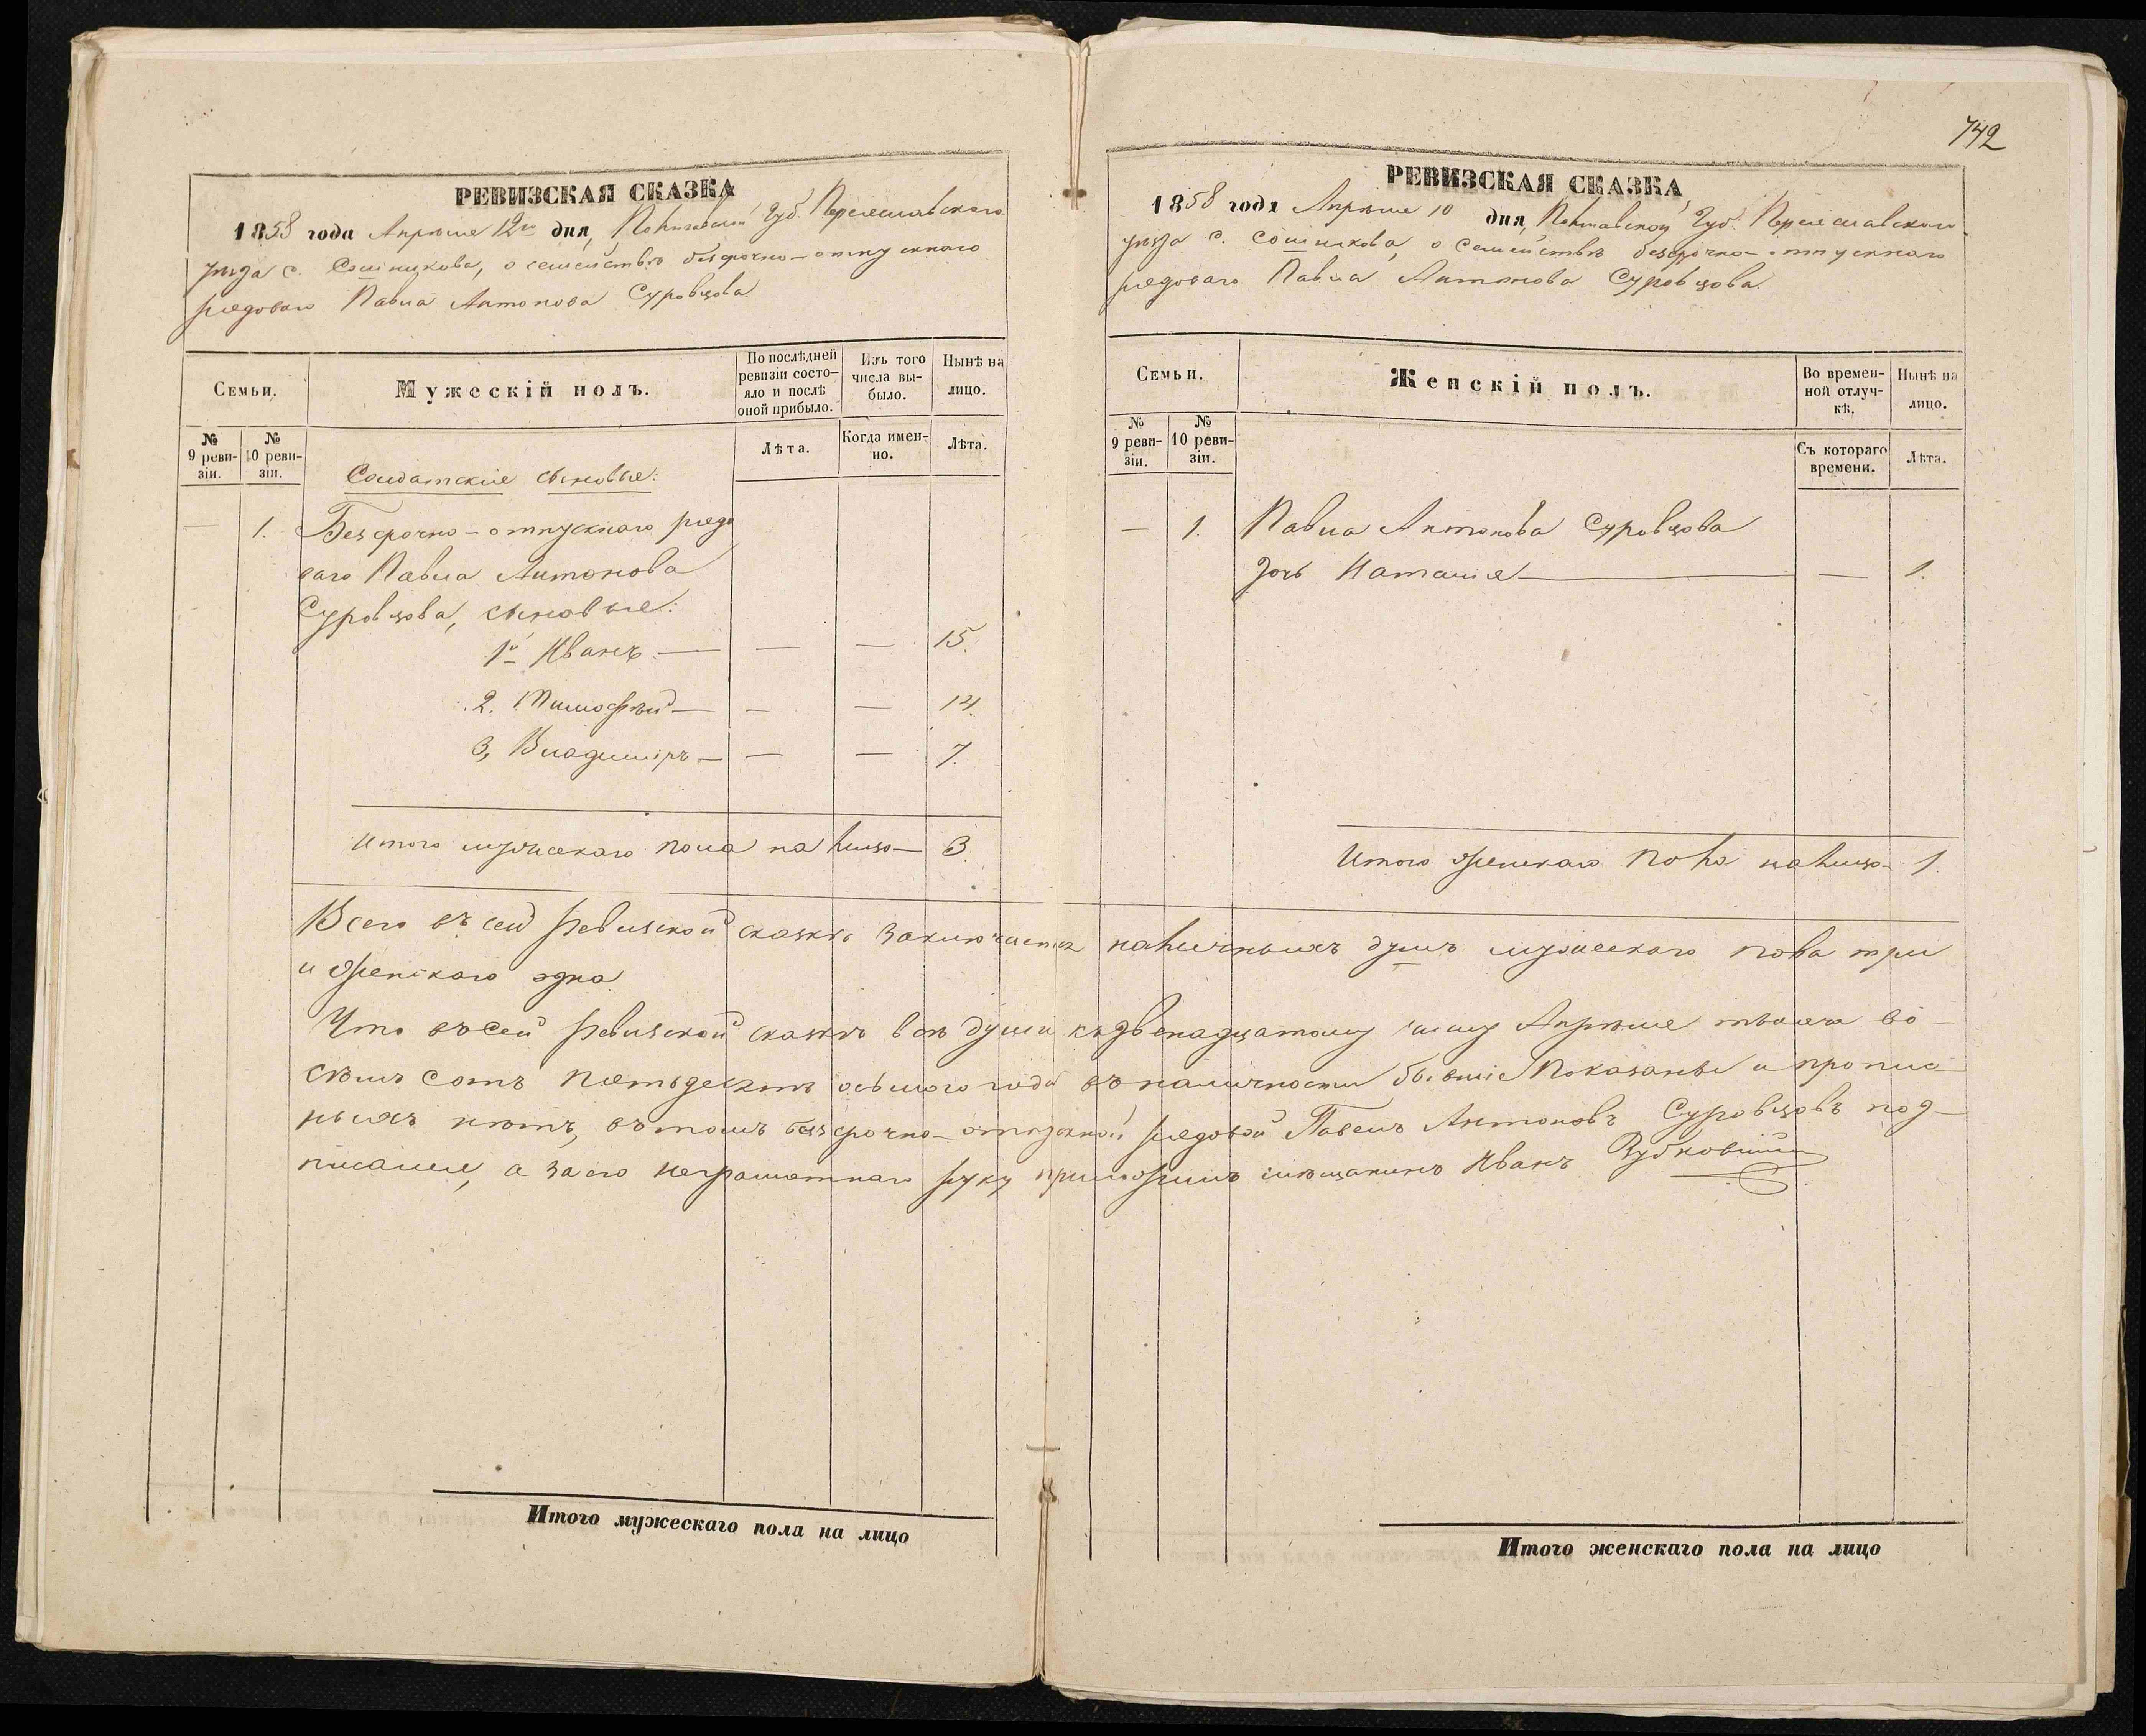 742
РЕВИЗСКАЯ СКАЗКА
1858 года Апрѣля 12го дня, Полтавской Губ. Переяславскаго
уѣзда с. Сошникова, о семействѣ безсрочно-отпускнаго
рядоваго Павла Антонова Суровцова
Семьи.
Мужескій полъ.
По послѣдней ревизіи состояло и послѣ оной прибыло.
Изъ того числа выбыло.
Нынѣ на лицо.
№ 9 ревизіи.
№ 10 ревизіи.
Лѣта.
Когда именно.
Лѣта.
Солдатскіе сыновья:
— 1. Безсрочно-отпускнаго рядо
ваго Павла Антонова
Суровцова, сыновья:
1й Иванъ — — — 15.
2. Тимофѣй — — — 14.
3, Владиміръ — — — 7.
Итого мужескаго пола на лицо — 3.
РЕВИЗСКАЯ СКАЗКА
1858 года Апрѣля 10 дня, Полтавской Губ. Переяславскаго
уѣзда с. Сошникова, о семействѣ безсрочно-отпускнаго
рядоваго Павла Антонова Суровцова.
Семьи.
Женскій полъ.
Во временной отлучкѣ.
Нынѣ на лицо.
№ 9 ревизіи.
№ 10 ревизіи.
Съ котораго времени.
Лѣта.
— 1. Павла Антонова Суровцова
дочь Наталія — — 1.
Итого женскаго пола на лицо — 1.
Всего въ сей ревизской сказкѣ заключается наличныхъ душъ мужескаго пола три
и женскаго одна.
Что въ сей ревизской сказкѣ всѣ души къ двенадцатому числу Апрѣля тысяча во-
семь сотъ пятьдесятъ осьмого года въ наличности бывшіе показаны и пропис
ныхъ нѣтъ, въ томъ безсрочно-отпускной рядовой Павелъ Антоновъ Суровцовъ под-
писался, а за его неграмотнаго руку приложилъ мѣщанинъ Иванъ Зубковшій
Итого мужескаго пола на лицо
Итого женскаго пола на лицо